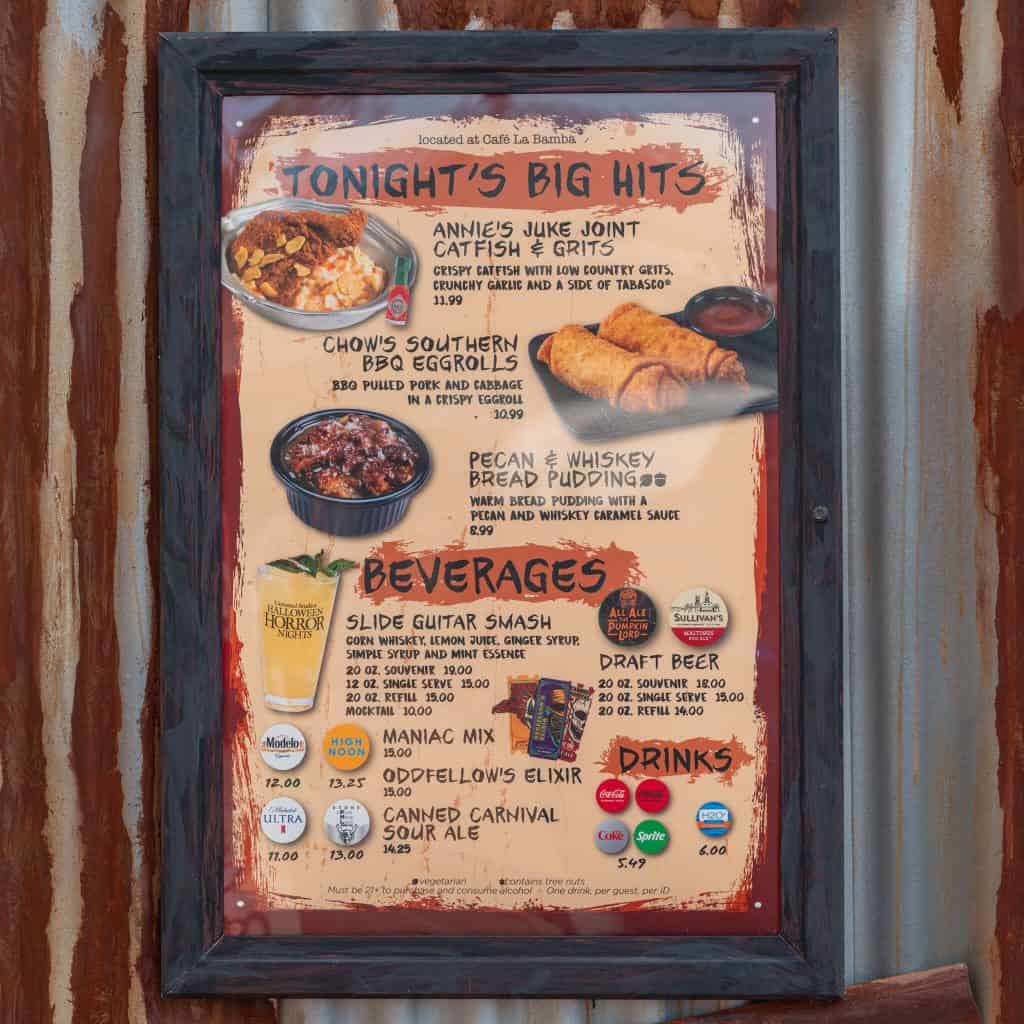 located at Café La Bamba
TONIGHT'S BIG HITS
ANNIE'S JUKE JOINT
CATFISH & GRITS
CRISPY CATFISH WITH LOW COUNTRY GRITS,
CRUNCHY GARLIC AND A SIDE OF TABASCO®
11.99
CHOW'S SOUTHERN
BBQ EGGROLLS
BBQ PULLED PORK AND CABBAGE
IN A CRISPY EGGROLL
10.99
PECAN & WHISKEY
BREAD PUDDING
WARM BREAD PUDDING WITH A
PECAN AND WHISKEY CARAMEL SAUCE
8.99
BEVERAGES
Universal Studios
HALLOWEEN
HORROR
NIGHTS
SLIDE GUITAR SMASH
CORN WHISKEY, LEMON JUICE, GINGER SYRUP,
SIMPLE SYRUP AND MINT ESSENCE
20 OZ. SOUVENIR 19.00
12 OZ. SINGLE SERVE 15.00
20 OZ. REFILL 15.00
MOCKTAIL 10.00
ALL ALE
THE
PUMPKIN
LORD
SULLIVAN'S
MALTINGS
RED ALE
DRAFT BEER
20 OZ. SOUVENIR 18.00
20 OZ. SINGLE SERVE 15.00
20 OZ. REFILL 14.00
Modelo
12.00
HIGH
NOON
13.25
ULTRA
11.00
13.00
MANIAC MIX
15.00
ODDFELLOW'S ELIXIR
15.00
CANNED CARNIVAL
SOUR ALE
14.25
DRINKS
Coca-Cola
Coke
Sprite
5.49
H2O
6.00
vegetarian contains tree nuts
Must be 21+ to purchase and consume alcohol · One drink, per guest, per ID